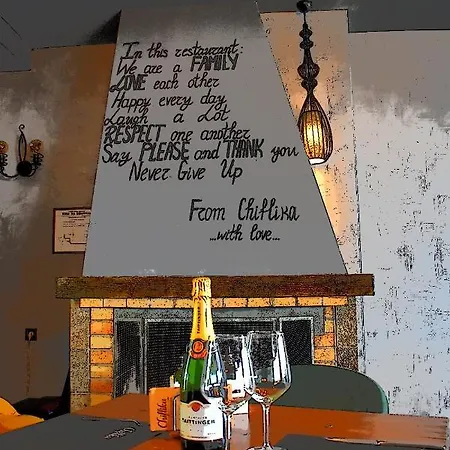 In this restaurant:
We are a FAMILY
LOVE each other
Happy every day
Laugh a Lot
RESPECT one another
Say PLEASE and THANK you
Never Give Up
From Chiflika
...with love...
Chiflika
TAITTINGER